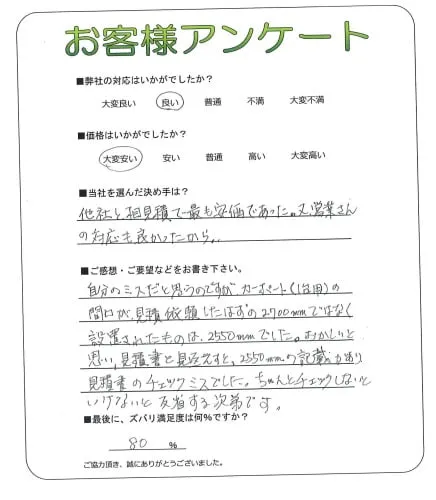 お客様アンケート
■弊社の対応はいかがでしたか？
大変良い 良い 普通 不満 大変不満
■価格はいかがでしたか？
大変安い 安い 普通 高い 大変高い
■当社を選んだ決め手は？
他社と相見積で最も安価であった。又、営業さん
の対応も良かったから、
■ご感想・ご要望などをお書き下さい。
自分のミスだと思うのですが、カーポート(1台用)の
間口が、見積依頼したはずの2700mmではなく
設置されたものは、2550mmでした。おかしいと
思い、見積書と見ると、2550mmの記載があり
見積書のチェックミスでした。ちゃんとチェックしないと
いけないと反省する次第です。
■最後に、ズバリ満足度は何%ですか？
80 %
ご協力頂き、誠にありがとうございました。